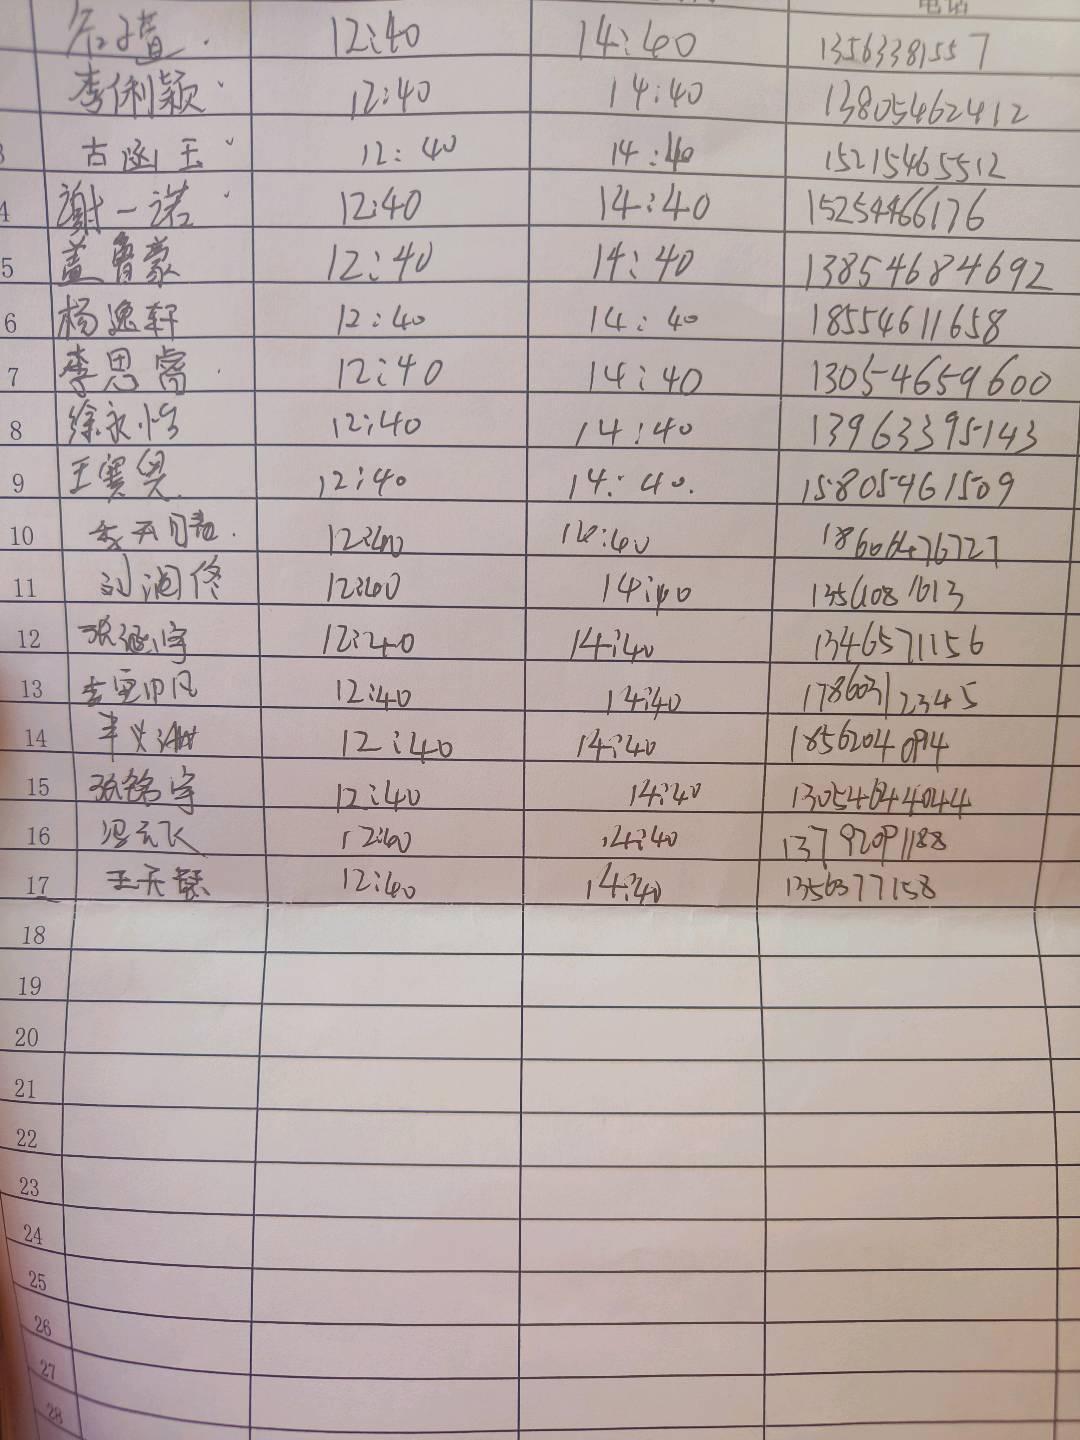 电话
12:40 14:40 13563381557
李俐颖 12:40 14:40 13805462412
3 古涵玉 12:40 14:40 15215465512
4 谢一诺 12:40 14:40 15254466176
5 盖鲁豪 12:40 14:40 13854684692
6 杨逸轩 12:40 14:40 18554611658
7 李思睿 12:40 14:40 13054659600
8 徐永怡 12:40 14:40 13963395143
9 王 12:40 14:40. 15805461509
10 12:40 14:40 18606476727
11 刘润佟 12:40 14:40
12 张涵宇 12:40 14:40 1346571156
13 12:40 14:40 17860312345
14 12:40 14:40 1856204094
15 张铭宇 12:40 14:40 13054644044
16 冯云飞 12:40 14:40 13792091188
17 王天慧 12:40 14:40 1356377158
18
19
20
21
22
23
24
25
26
27
28